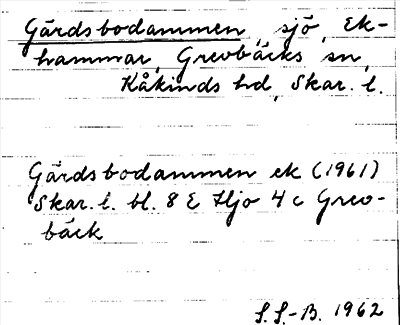 Gärdsbodammen, sjö, Ek-
hammar, Grevbäcks sn,
Kåkinds hd, Skar. l.
Gärdsbodammen ek (1961)
Skar. l. bl. 8 E Hjo 4 c Grev-
bäck
S.S.-B. 1962